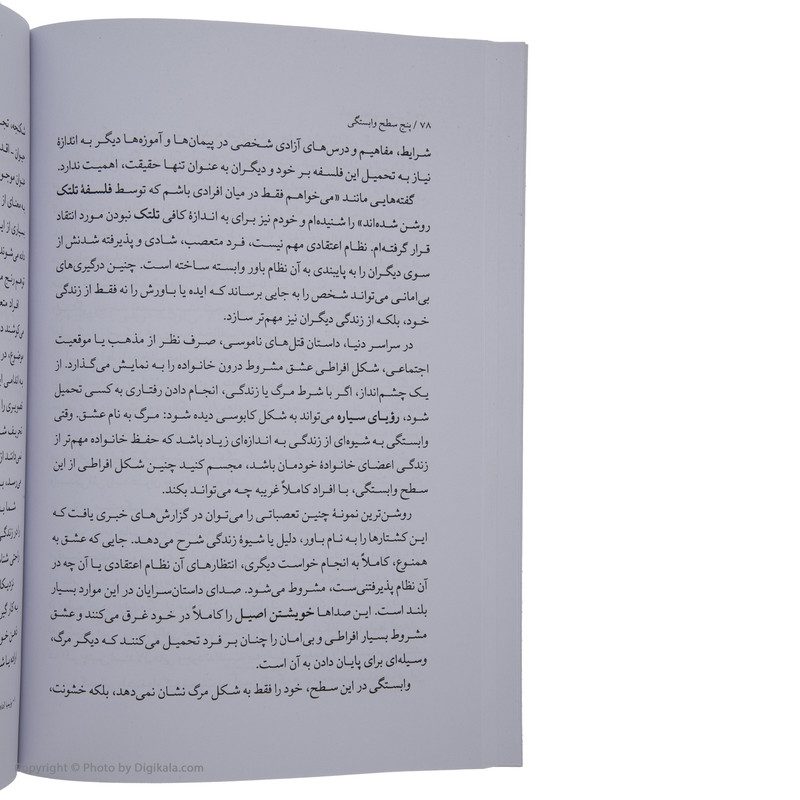 ۷۸ / پنج سطح وابستگی
شرایط، مفاهیم و درس‌های آزادی شخصی در پیمان‌ها و آموزه‌ها دیگر به اندازهٔ
نیاز به تحمیل این فلسفه بر خود و دیگران به عنوان تنها حقیقت، اهمیت ندارد.
گفته‌هایی مانند «می‌خواهم فقط در میان افرادی باشم که توسط فلسفهٔ تلتک
روشن شده‌اند» را شنیده‌ام و خودم نیز برای به اندازهٔ کافی تلتک نبودن مورد انتقاد
قرار گرفته‌ام. نظام اعتقادی مهم نیست، فرد متعصب، شادی و پذیرفته شدنش از
سوی دیگران را به پایبندی به آن نظام باور وابسته ساخته است. چنین درگیری‌های
بی‌امانی می‌تواند شخص را به جایی برساند که ایده یا باورش را نه فقط از زندگی
خود، بلکه از زندگی دیگران نیز مهم‌تر سازد.
در سراسر دنیا، داستان قتل‌های ناموسی، صرف نظر از مذهب یا موقعیت
اجتماعی، شکل افراطی عشق مشروط درون خانواده را به نمایش می‌گذارد. از
یک چشم‌انداز، اگر با شرط مرگ یا زندگی، انجام دادن رفتاری به کسی تحمیل
شود، رؤیای سیاره می‌تواند به شکل کابوسی دیده شود: مرگ به نام عشق. وقتی
وابستگی به شیوه‌ای از زندگی به اندازه‌ای زیاد باشد که حفظ خانواده مهم‌تر از
زندگی اعضای خانوادهٔ خودمان باشد، مجسم کنید چنین شکل افراطی از این
سطح وابستگی، با افراد کاملاً غریبه چه می‌تواند بکند.
روشن‌ترین نمونهٔ چنین تعصباتی را می‌توان در گزارش‌های خبری یافت که
این کشتارها را به نام باور، دلیل یا شیوهٔ زندگی شرح می‌دهد. جایی که عشق به
همنوع، کاملاً به انجام خواست دیگری، انتظارهای آن نظام اعتقادی یا آن چه در
آن نظام پذیرفتنی‌ست، مشروط می‌شود. صدای داستان‌سرایان در این موارد بسیار
بلند است. این صداها خویشتن اصیل را کاملاً در خود غرق می‌کنند و عشق
مشروط بسیار افراطی و بی‌امان را چنان بر فرد تحمیل می‌کنند که دیگر مرگ،
وسیله‌ای برای پایان دادن به آن است.
وابستگی در این سطح، خود را فقط به شکل مرگ نشان نمی‌دهد، بلکه خشونت،
Copyright © Photo by Digikala.com